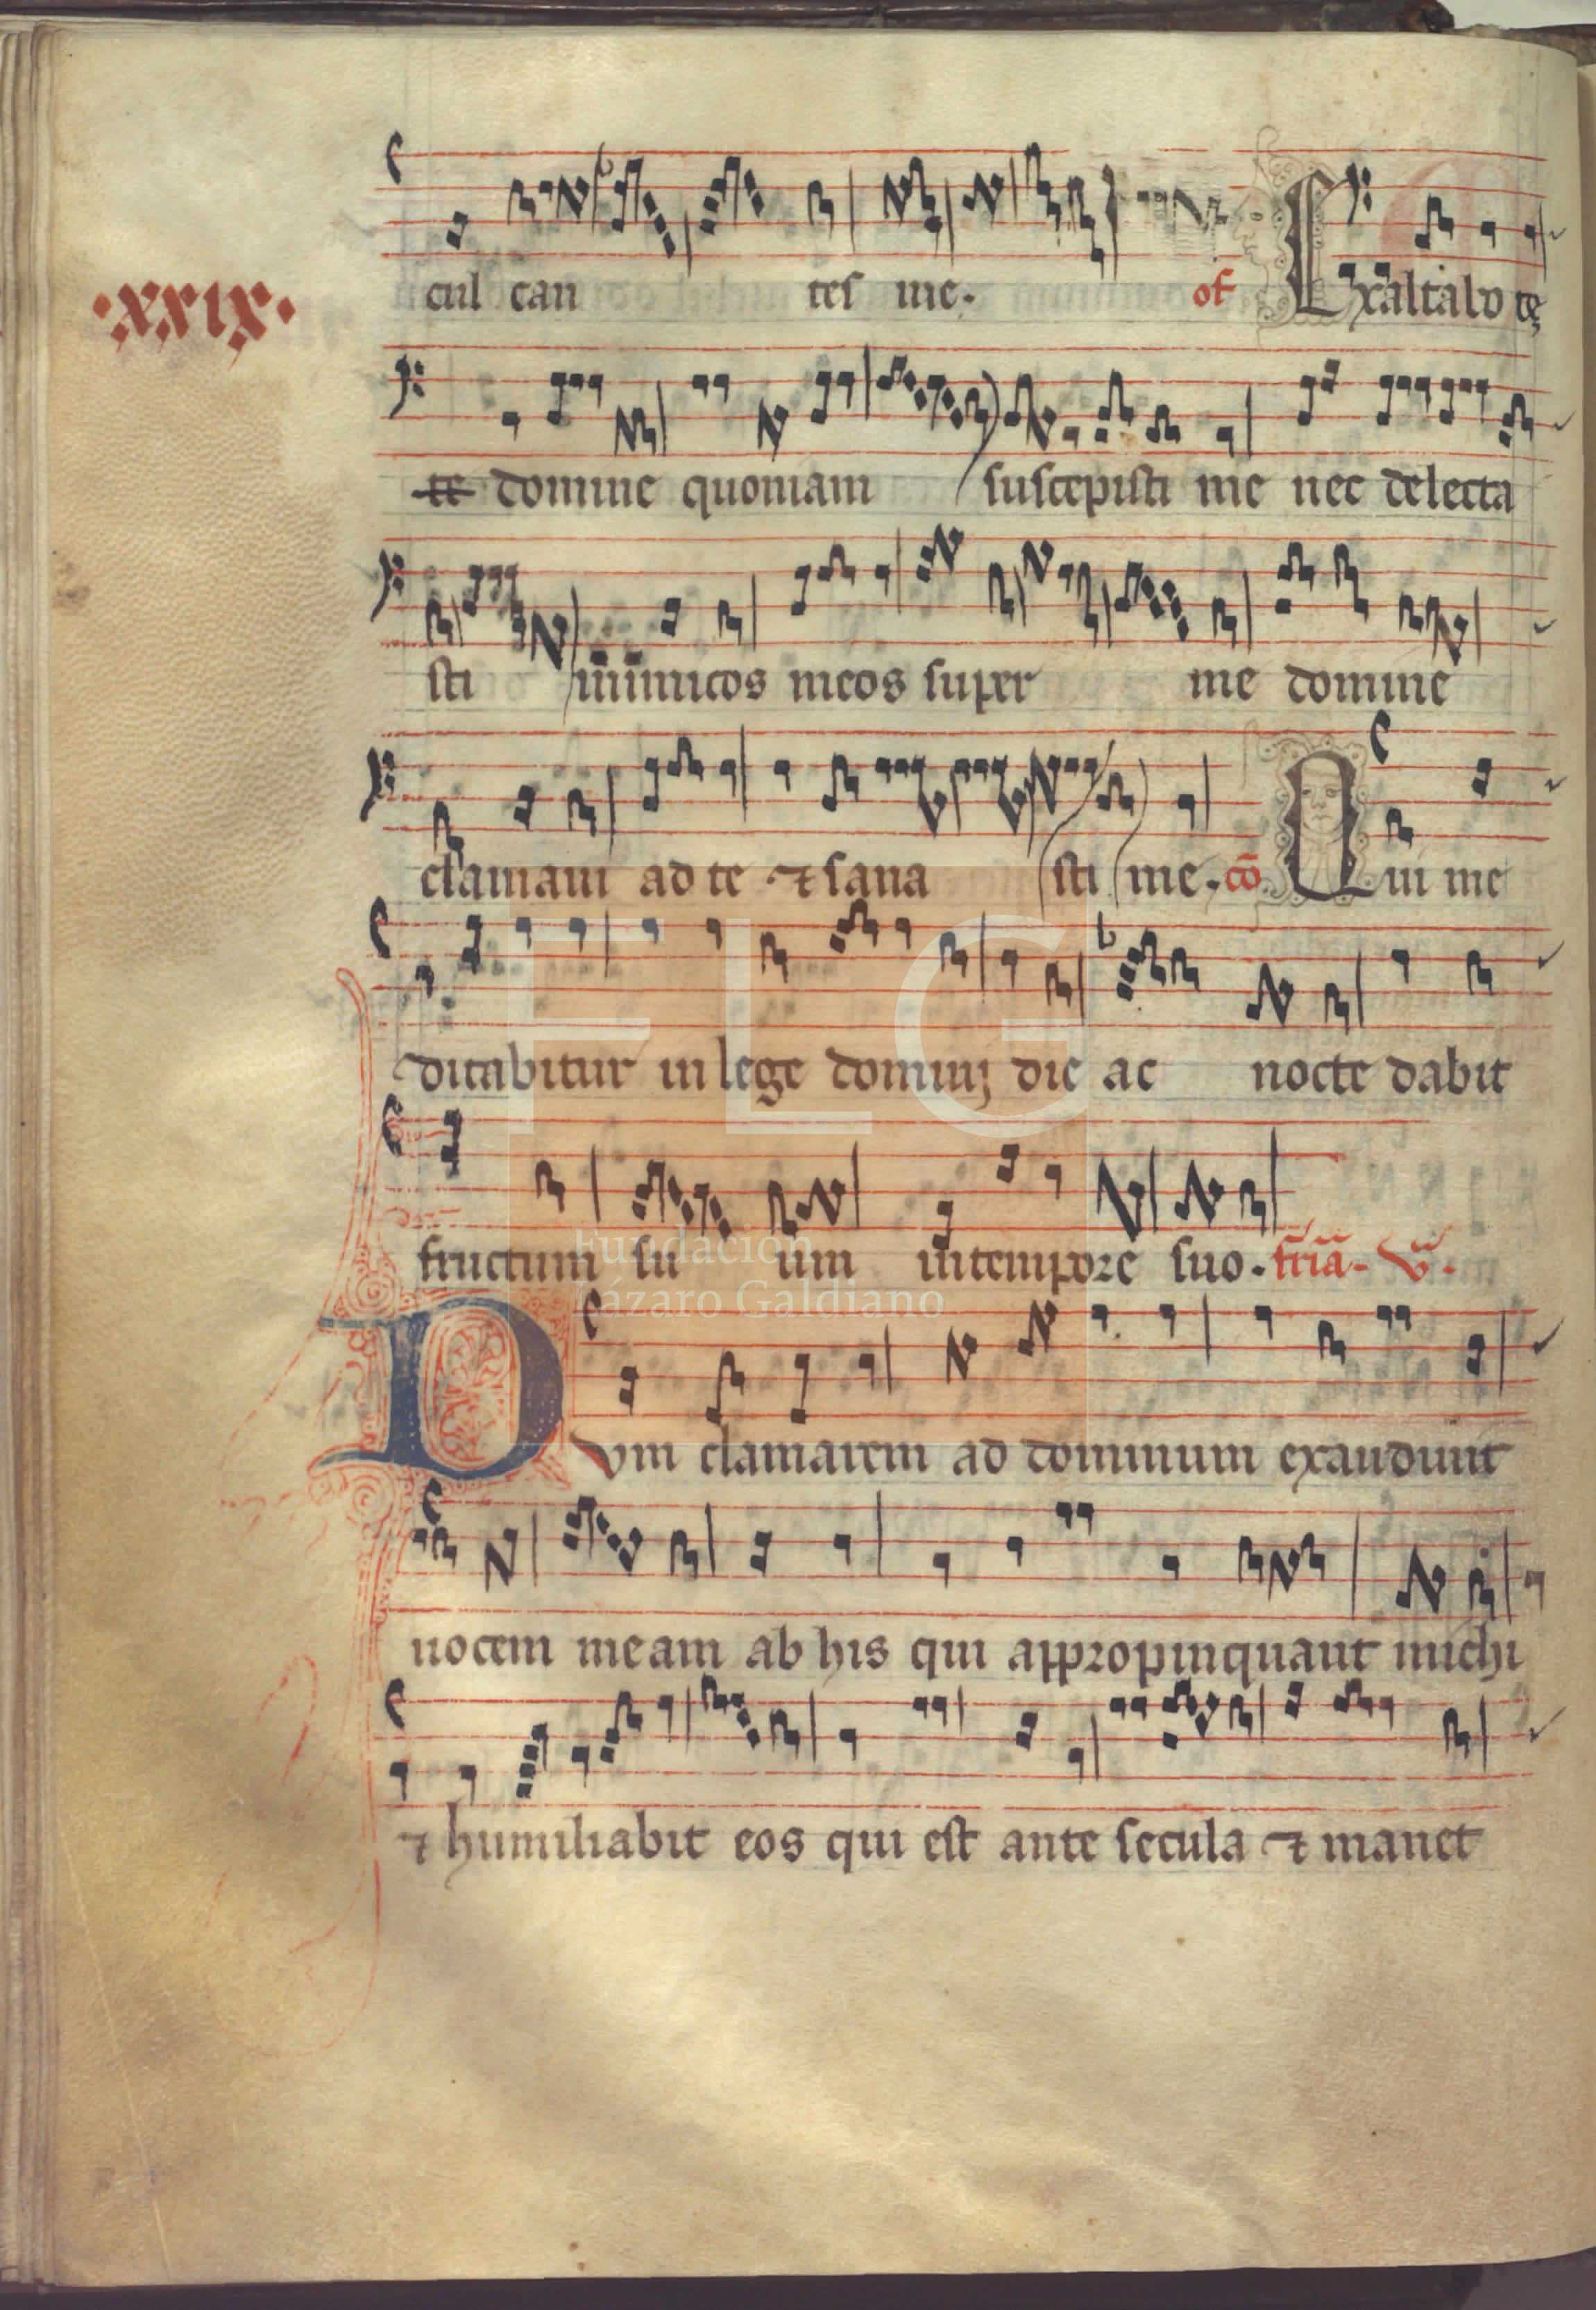 cul can tes me. of Exaltabo te
·xxix·
te domine quoniam suscepisti me nec delecta
sti inimicos meos super me domine
clamaui ad te ⁊ sana sti me. cō. Qui me
ditabitur in lege dominj die ac nocte dabit
fructum su um in tempore suo. fria. v.
Fundación
Lázaro Galdiano
FLG
Dum clamarem ad dominum exaudiuit
uocem meam ab his qui appropinquant michi
⁊ humiliabit eos qui est ante secula ⁊ manet